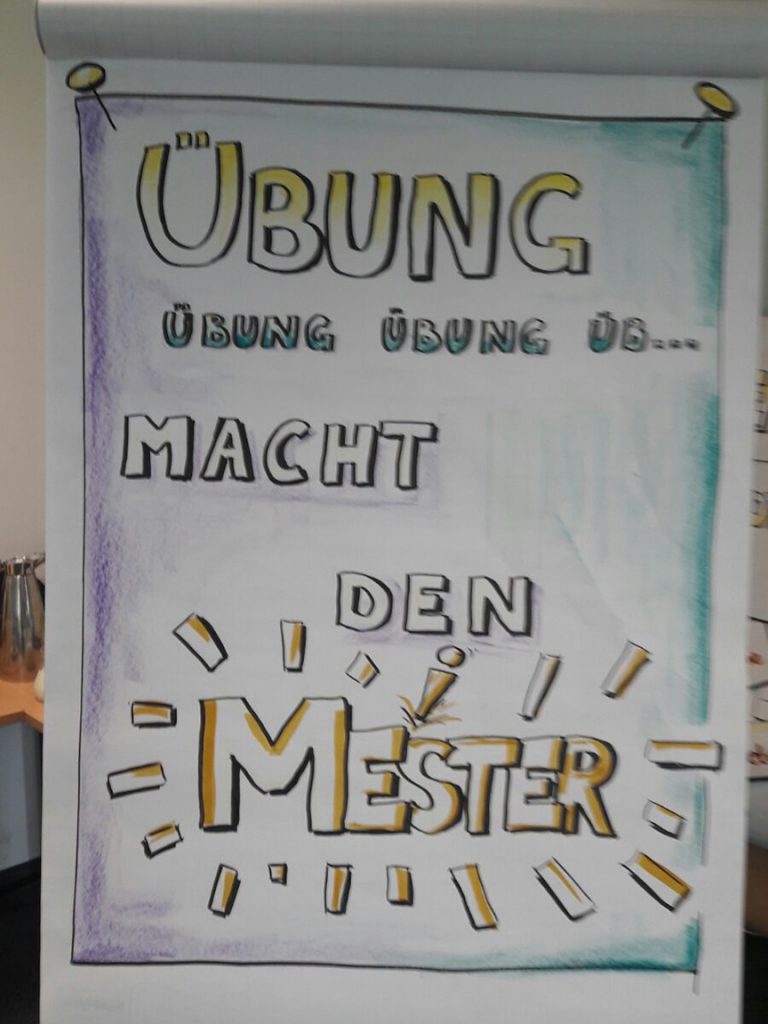 ÜBUNG
ÜBUNG ÜBUNG ÜB...
MACHT
DEN
MEiSTER